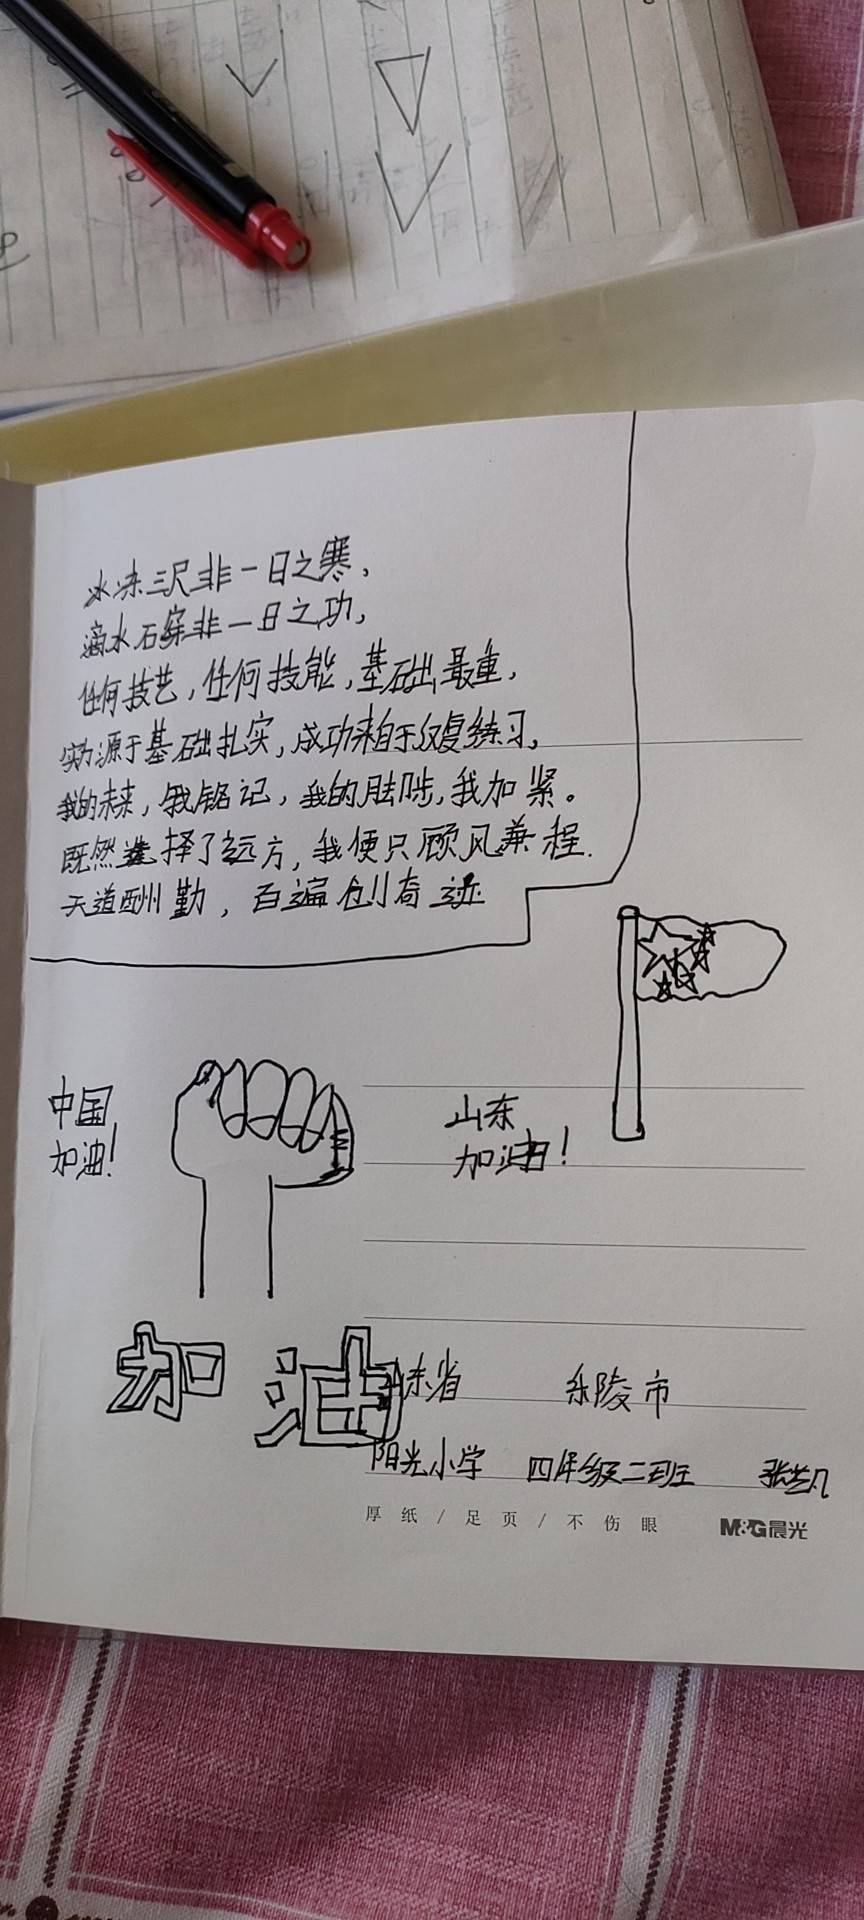 冰冻三尺非一日之寒，
滴水石穿非一日之功，
任何技艺，任何技能，基础最重，
实力源于基础扎实，成功来自于反复练习，
我的未来，我铭记，我的脚步，我加紧。
既然选择了远方，我便只顾风兼程.
天道酬勤，百遍创奇迹
中国
加油！
山东
加油！
加油
山东省 乐陵市
阳光小学 四年级二班 张艺凡
厚纸/足页/不伤眼
M&G晨光